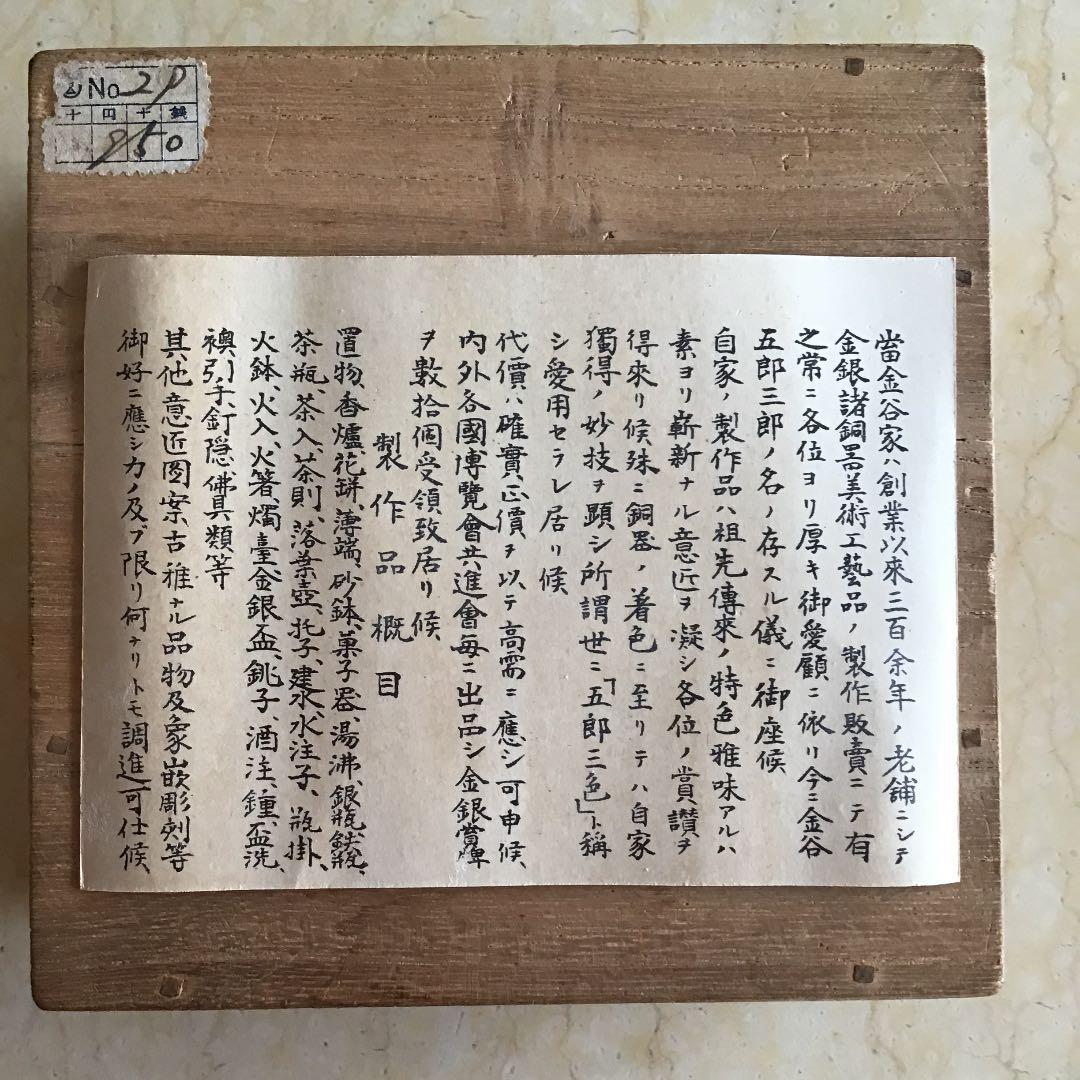 No 29
十円十銭
950
當金谷家ハ創業以來三百余年ノ老舗ニシテ
金銀諸銅噐美術工藝品ノ製作販賣ニテ有
之常ニ各位ヨリ厚キ御愛顧ニ依リ今ニ金谷
五郎三郎ノ名ノ存スル儀ニ御座候
自家ノ製作品ハ祖先傳來ノ特色雅味アルハ
素ヨリ嶄新ナル意匠ヲ凝シ各位ノ賞讃ヲ
得來リ候殊ニ銅器ノ着色ニ至リテハ自家
獨得ノ妙技ヲ顕シ所謂世ニ「五郎三色」ト稱
シ愛用セラレ居リ候
代價ハ確實正價ヲ以テ高需ニ應シ可申候、
内外各國博覽會共進會每ニ出品シ金銀賞牌
ヲ數拾個受領致居リ候
製作品概目
置物、香爐、花缾、薄端、砂鉢、菓子器、湯沸、銀瓶、鉄瓶、
茶瓶、茶入、茶則、落葉壺、托子、建水、水注子、瓶掛、
火鉢、火入、火箸、燭臺、金銀盃、銚子、酒注、鍾、盃洗、
襖引手、釘隠、佛具類等
其他意匠図案古雅ナル品物及象嵌彫刻等
御好ニ應シ力ノ及ブ限リ何ナリトモ調進可仕候、